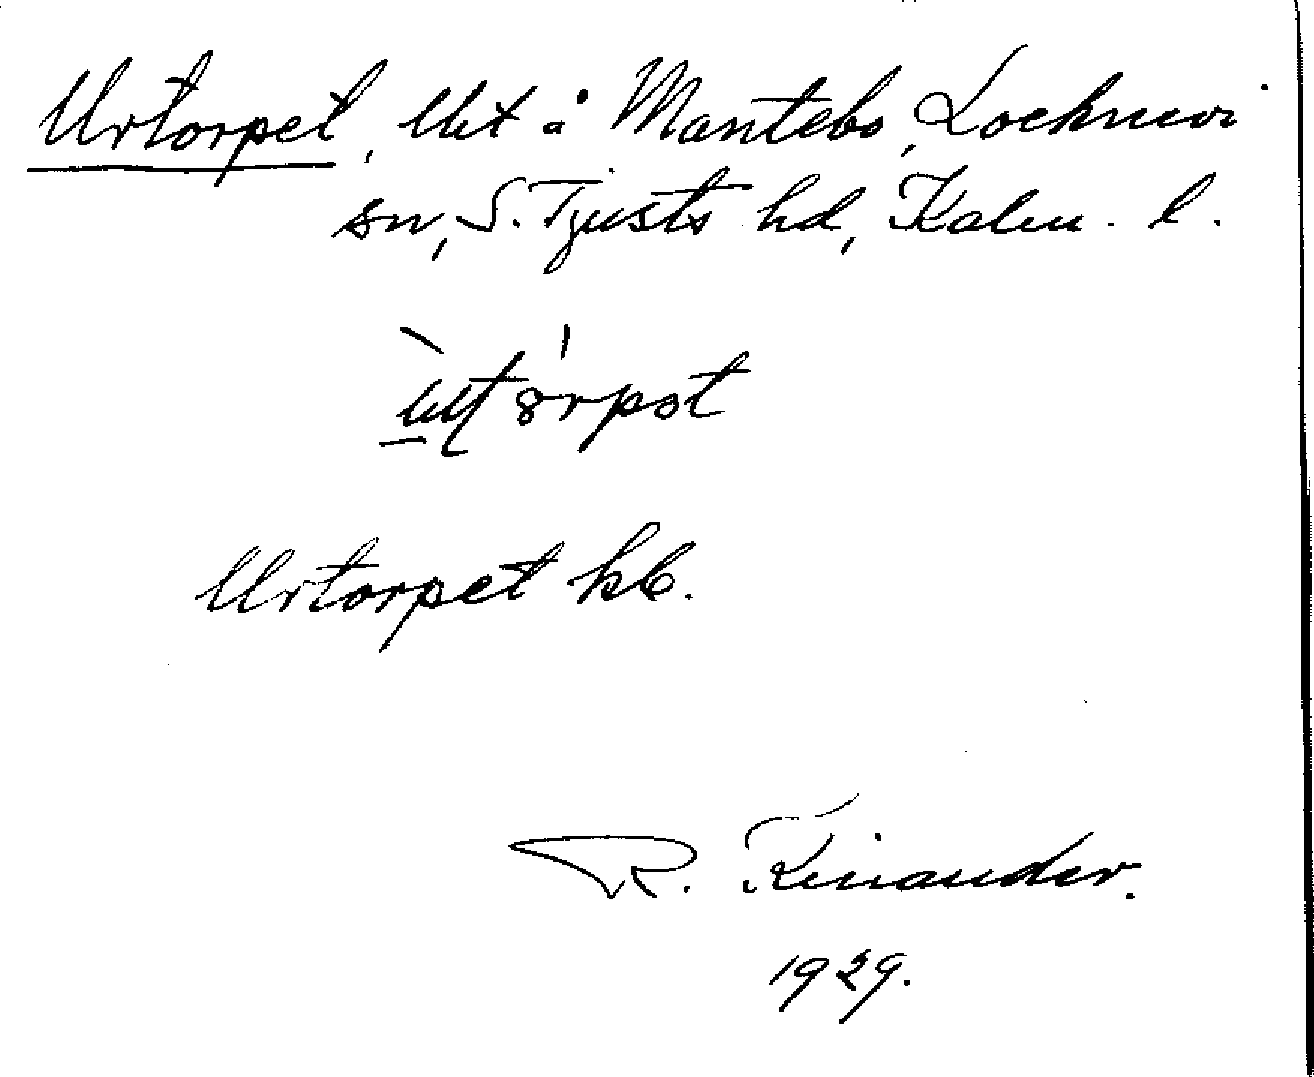 Urtorpet, Utt å Mantebo, Locknevi
sn, S. Tjusts hd, Kalm. l.
Urtorpet kb.
R. Kinander.
1929.